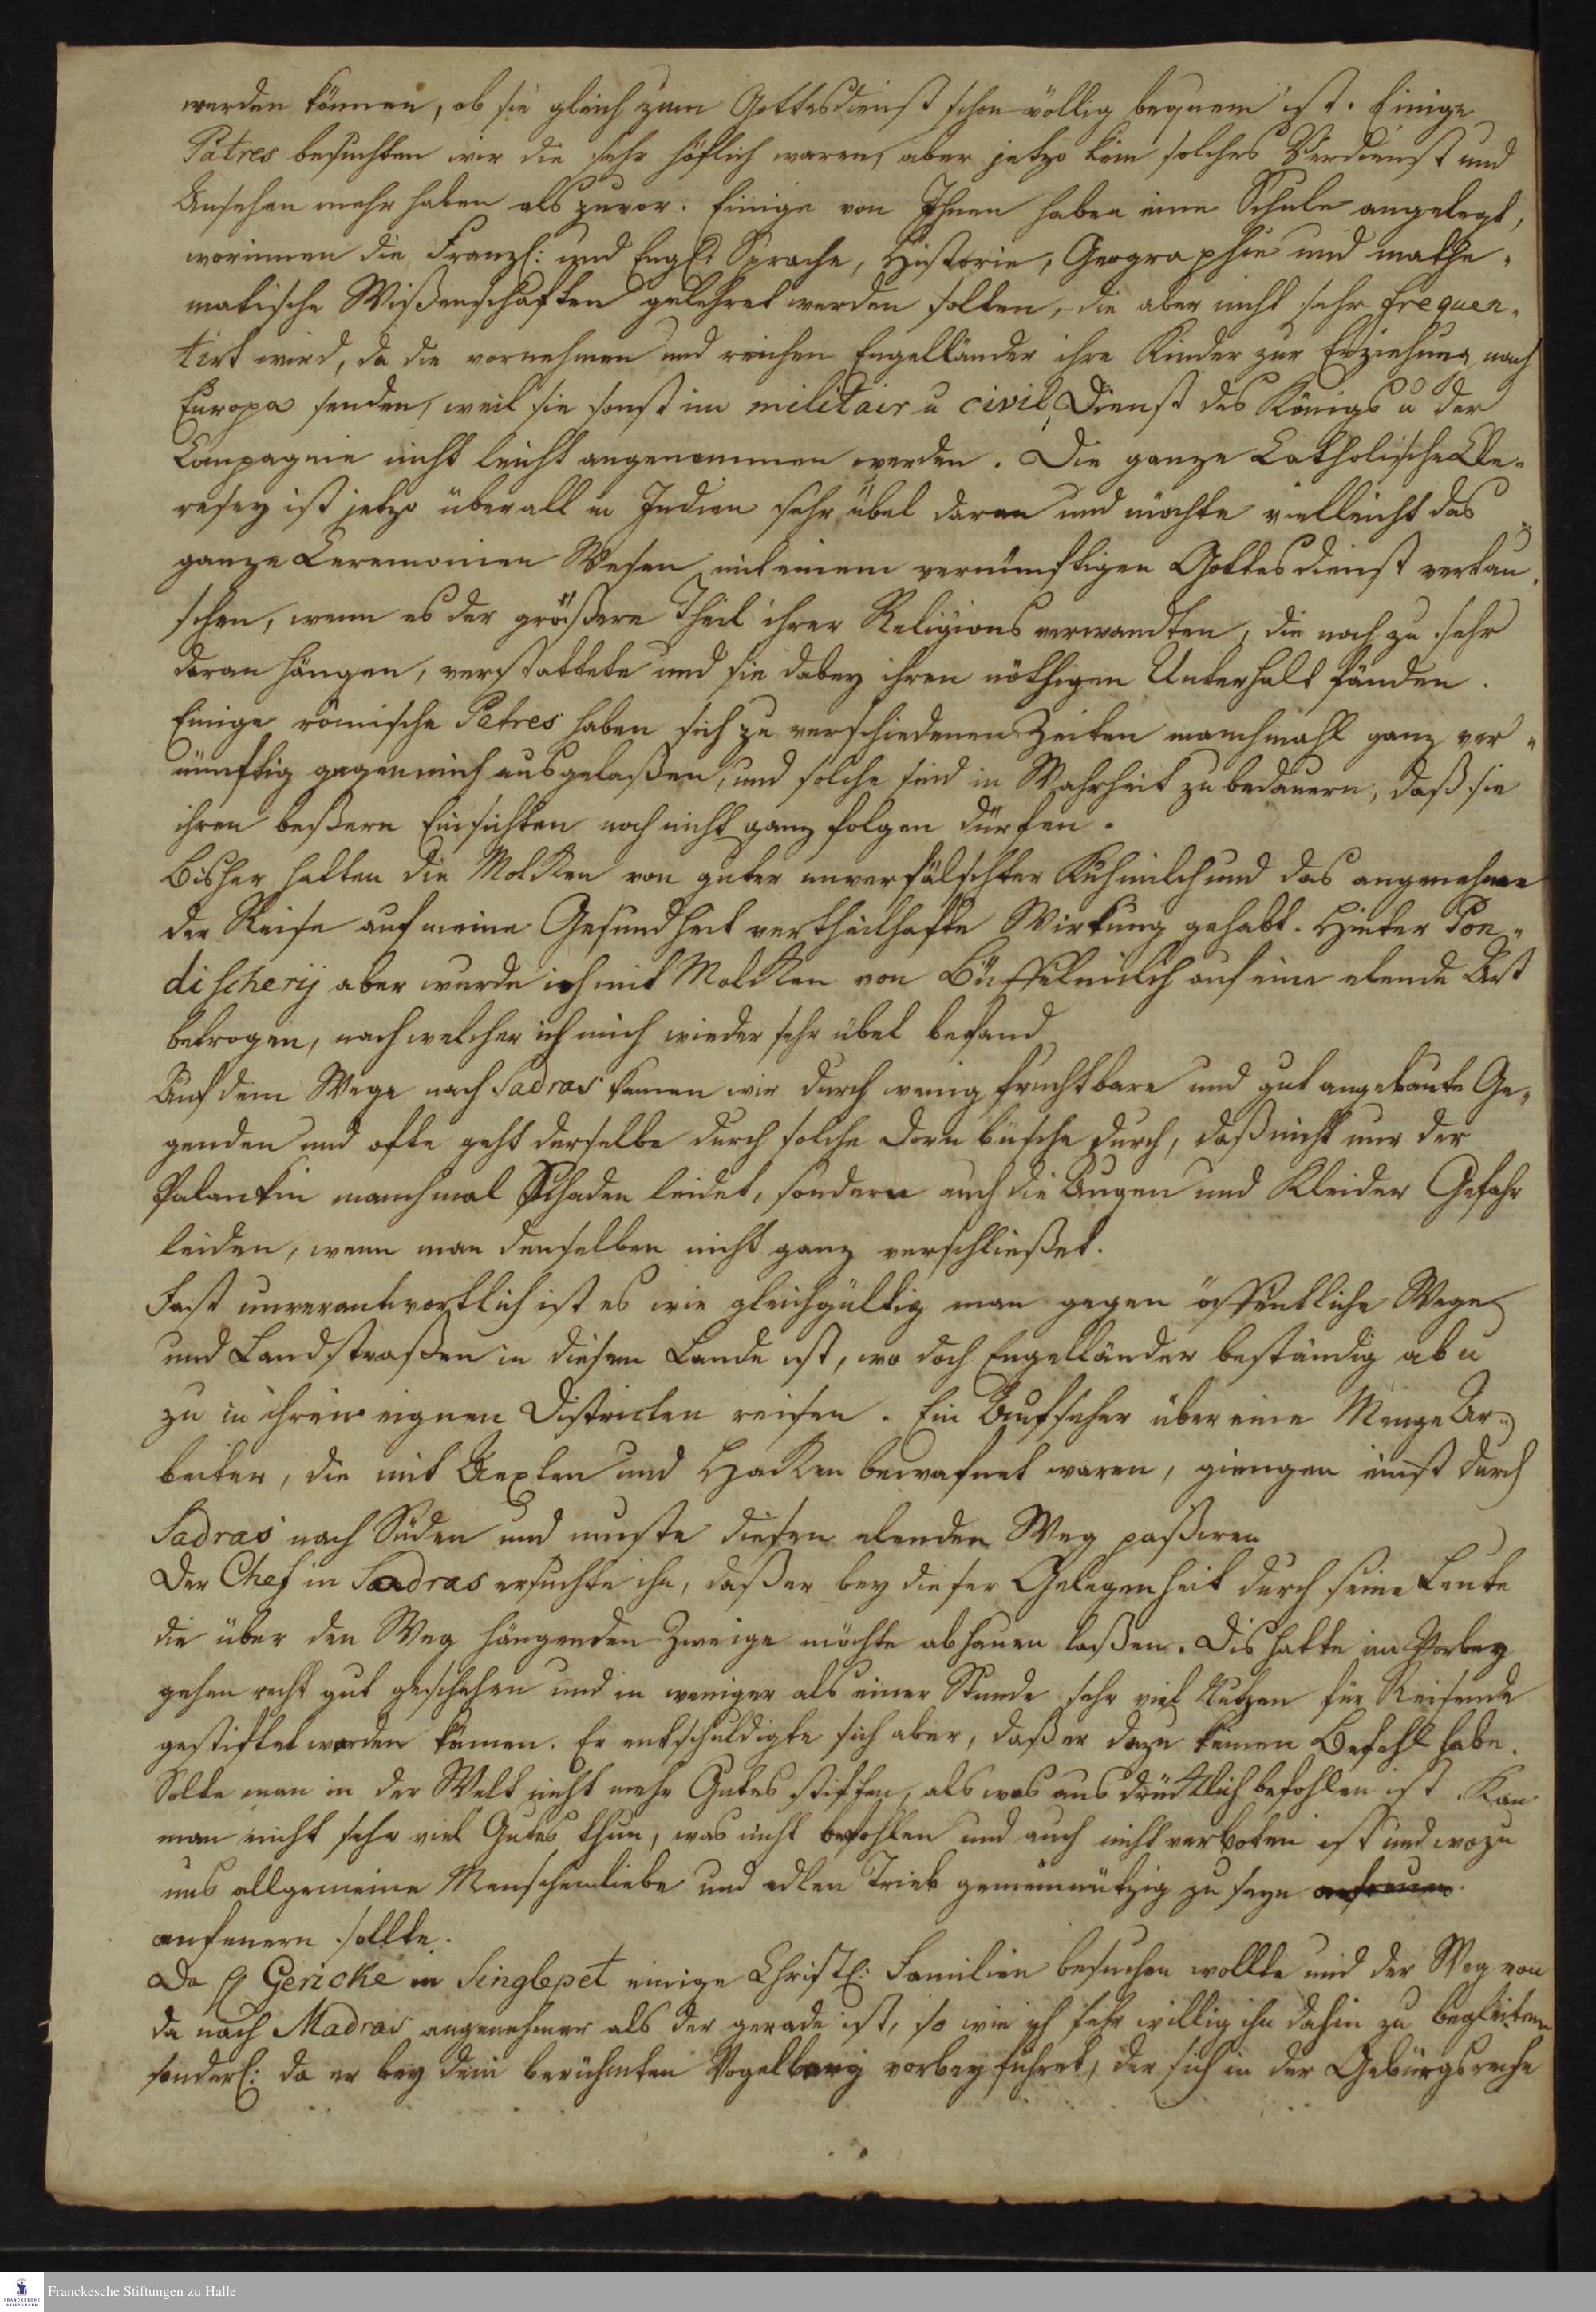 werden können, ob sie gleich zum Gottesdienst schon völlig bequem ist. Einige
Patres besuchten wir die sehr höflich waren, aber jetzo kein solches Verdienst und
Ansehen mehr haben als zuvor. Einige von Ihnen haben eine Schule angelegt,
worinnen die Franzl: und Engl: Sprache, Historie, Geographie und mathe-
matische Wißenschaften gelehret werden sollen, die aber nicht sehr frequen-
tirt wird, da die vornehmen und reichen Engelländer ihre Kinder zur Erziehung nach
Europa senden, weil sie sonst im militair u civil Dienst des Königs u der
Compagnie nicht leicht angenommen werden. Die ganze Catholische Cle-
resey ist jetzo überall in Indien sehr übel daran und möchte vielleicht das
ganze Ceremonien Wesen mit einem vernünftigen Gottesdienst vertau-
schen, wenn es der größere Theil ihrer Religionsverwandten, die noch zu sehr
daran hängen, verstattete und sie dabey ihren nöthigen Unterhalt fänden.
Einige römische Patres haben sich zu verschiedenen Zeiten manchmahl ganz ver-
nünftig gegen mich ausgelaßen, und solche sind in Wahrheit zu bedauern, daß sie
ihren beßern Einsichten noch nicht ganz folgen dürfen.
Bisher hatten die Molken von guter unverfälschter Kuhmilch und das angenehme
der Reise auf meine Gesundheit vortheilhafte Wirkung gehabt. Hinter Pon-
discherij aber wurde ich mit Molken von Büffelmilch auf eine elende Art
betrogen, nach welcher ich mich wieder sehr übel befand
Auf dem Wege nach Sadras kamen wir durch wenig fruchtbare und gut angebaute Ge-
genden und ofte geht derselbe durch solche Dorn büsche durch, daß nicht nur der
Palankin manchmal Schaden leidet, sondern auch die Augen und Kleider Gefahr
leiden, wenn man denselben nicht ganz verschließet.
Fast unverantwortlich ist es wie gleichgültig man gegen öffentliche Wege
und Landstraßen in diesem Lande ist, wo doch Engelländer beständig ab u
zu in ihren eignen Districten reisen. Ein Aufseher über eine Menge Ar-
beiter, die mit Aexten und Hacken bewafnet waren, giengen einst durch
Sadras nach Süden und muste diesen elenden Weg paßiren
Der Chef in Sadras ersuchte ihn, daß er bey dieser Gelegenheit durch seine Leute
die über den Weg hängenden Zweige möchte abhauen laßen. Dis hatte im Vorbey
gehen recht gut geschehen und in weniger als einer Stunde sehr viel Nutzen für Reisende
gestiftet werden können. Er entschuldigte sich aber, daß er dazu keinen Befehl habe.
Solte man in der Welt nicht mehr Gutes stiften, als was ausdrücklich befohlen ist. Kan
man nicht sehr viel Gutes thun, was nicht befohlen und auch nicht verboten ist und wozu
uns allgemeine Menschenliebe und edlen Trieb gemeinnützig zu seyn
anfeuern sollte.
Da H Gericke in Singlepet einige Christl: Familien besuchen wollte und der Weg von
da nach Madras angenehmer als der gerade ist, so wie ich sehr willig ihn dahin zu begleiten
sonderl: da er bey dem berühmten Vogelberg vorbey führet, der sich in der Gebürgsreihe
Franckesche Stiftungen zu Halle